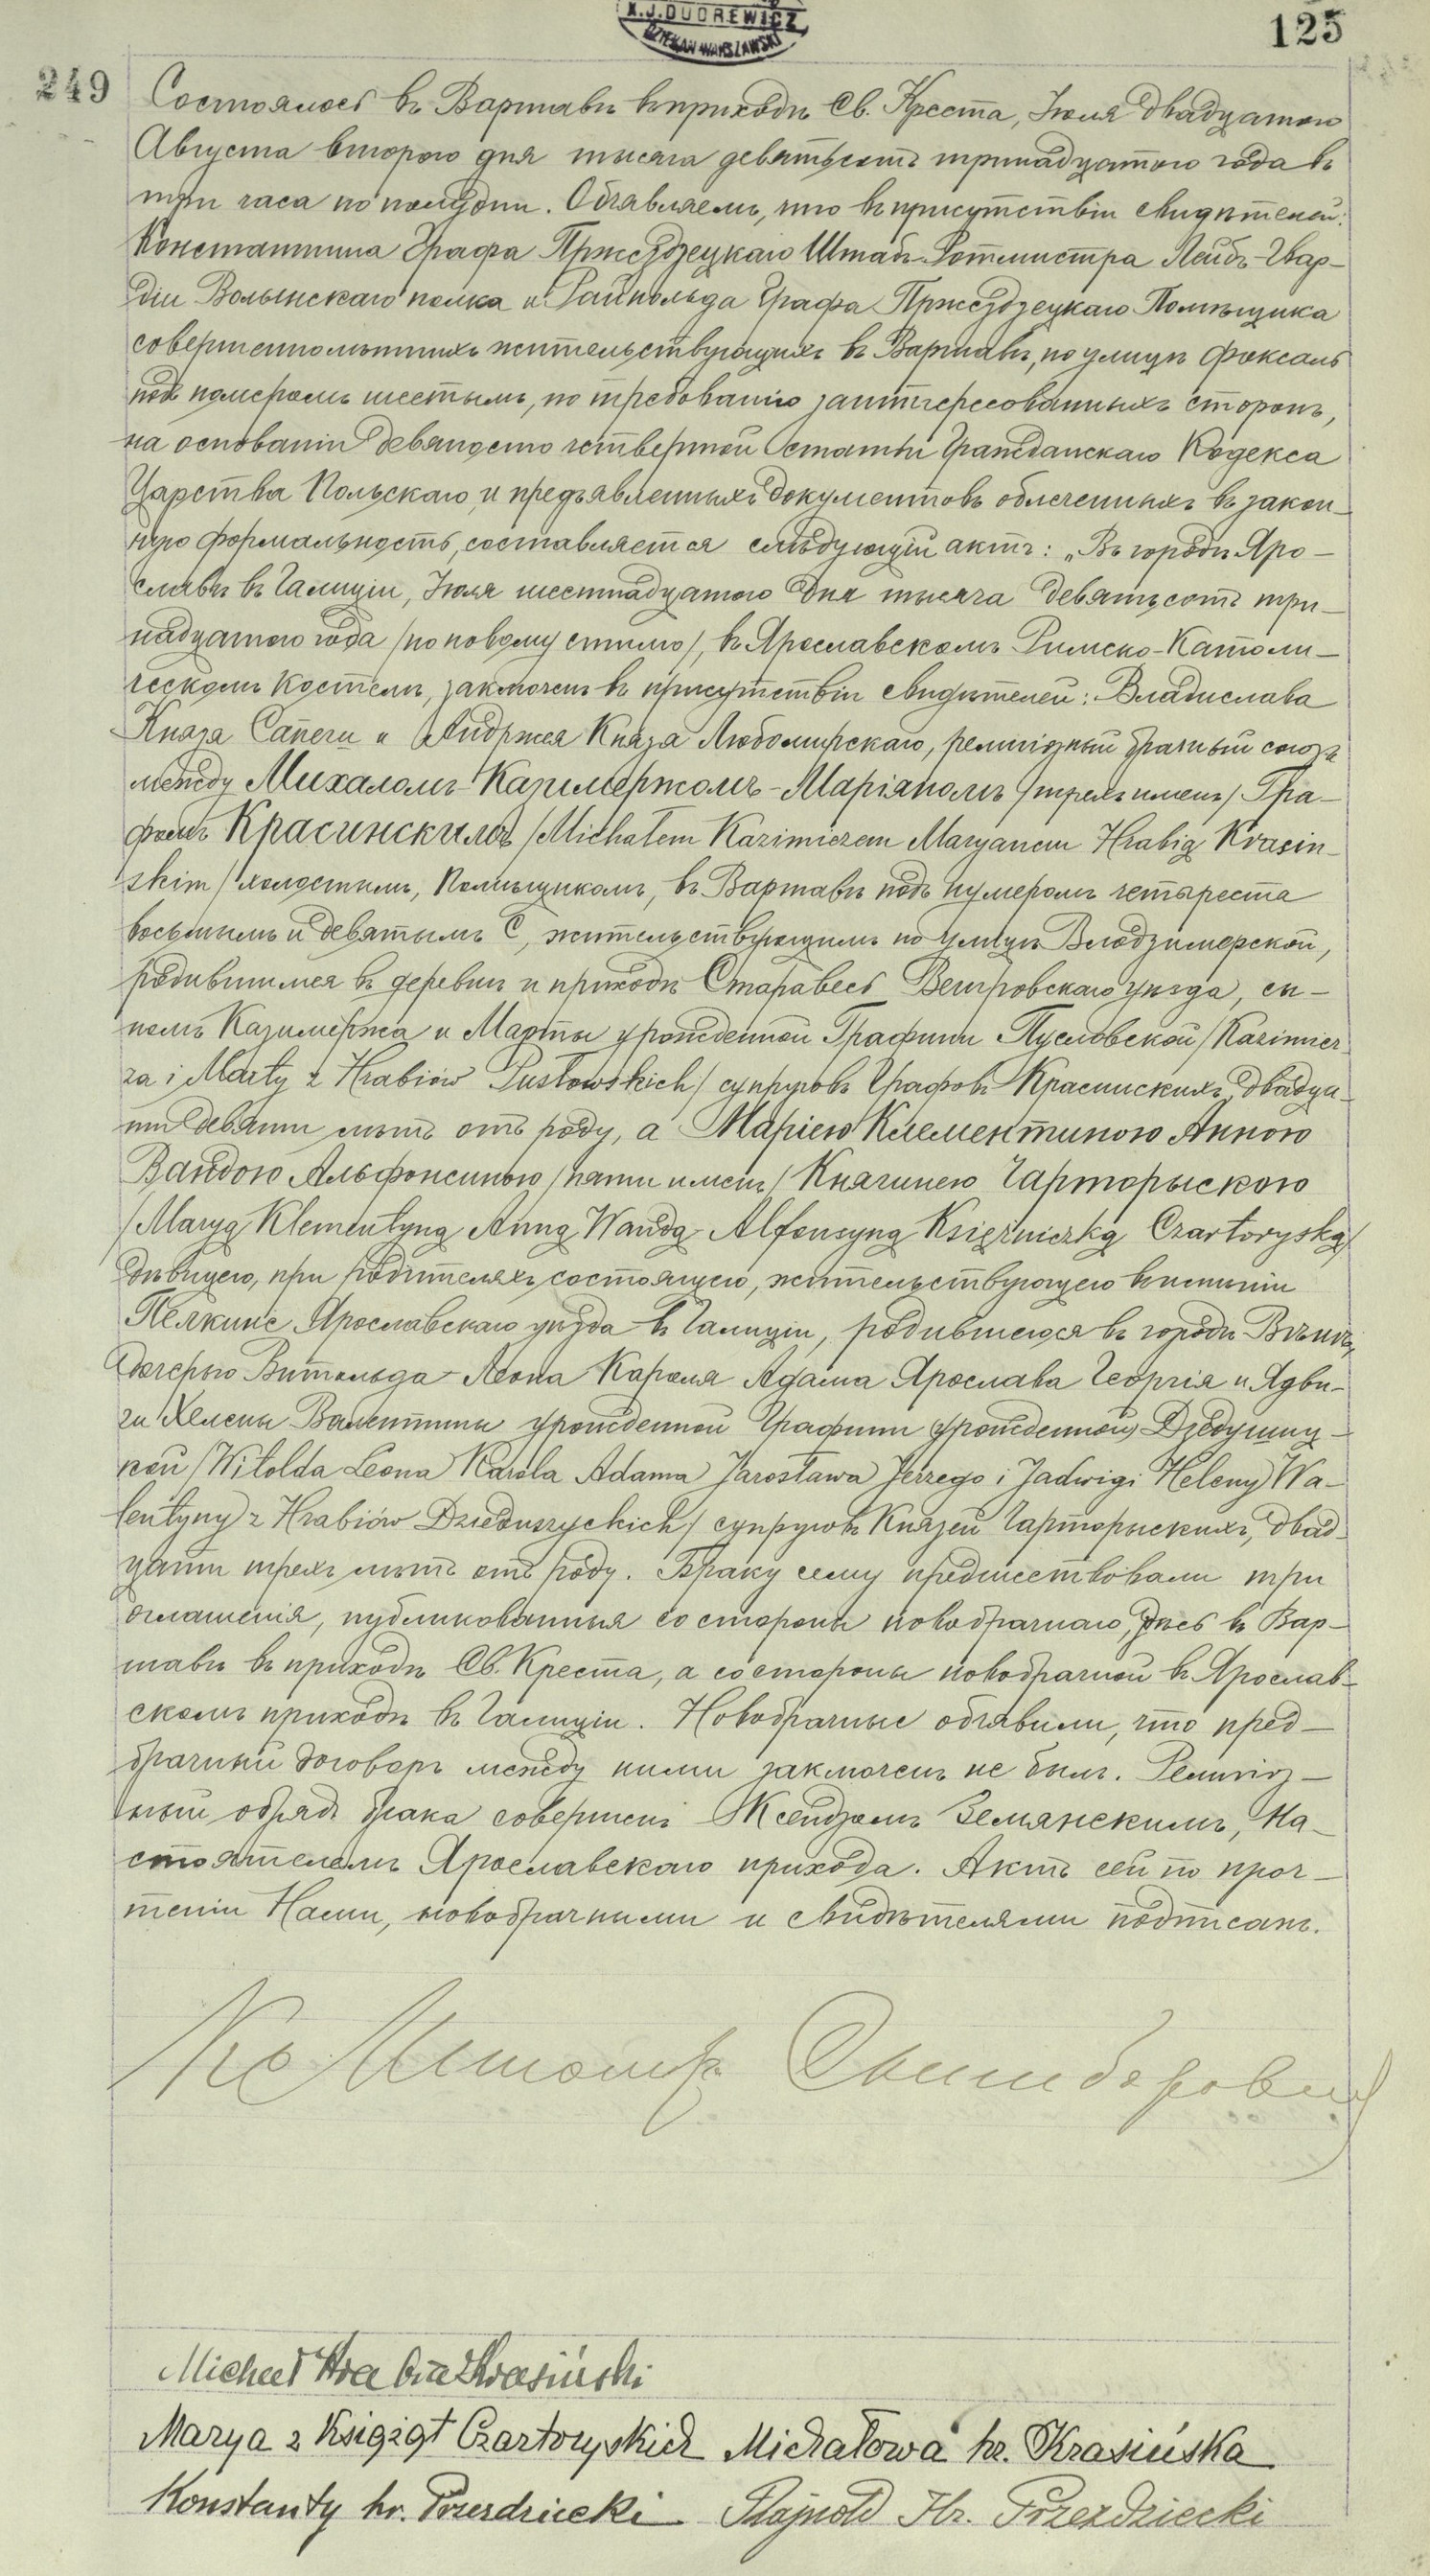 X.J.DUDREWICZ
DZIEKAN WARSZAWSKI
125
249
Состоялось въ Варшавѣ въ приходѣ Св. Креста, Іюля двадцатаго
Августа второго дня тысяча девятьсотъ тринадцатого года въ
три часа по полудни. Объявляемъ, что въ присутствіи свидѣтелей:
Константина Графа Пржездзецкаго Штабъ-Ротмистра Лейбъ-Гвар-
діи Волынскаго полка и Райнольда Графа Пржездзецкаго Помѣщика
совершеннолѣтнихъ жительствующихъ въ Варшавѣ, по улицѣ Фоксаль
подъ номеромъ шестымъ, по требованію заинтересованныхъ сторонъ,
на основаніи девяносто четвертой статьи Гражданскаго Кодекса
Царства Польскаго, и предъявленныхъ документовъ облеченныхъ въ закон-
ную формальность, составляется слѣдующій актъ: „Въ городѣ Яро-
славѣ въ Галиціи, Іюля шестнадцатого дня тысяча девятьсотъ три-
надцатого года /по новому стилю/, въ Ярославскомъ Римско-Католи-
ческомъ Костелѣ, заключенъ въ присутствіи свидѣтелей: Владислава
Князя Сапеги и Андржея Князя Любомирскаго, религіозный брачный союзъ
между Михаломъ-Казимержомъ-Маріаномъ /трехъ именъ/ Гра-
фомъ Красинскимъ /Michałem Kazimierzem Maryanem Hrabią Krasin-
skim/ холостымъ, Помѣщикомъ, въ Варшавѣ подъ нумеромъ четыреста
восьмымъ и девятымъ С, жительствующимъ по улицѣ Влодзимерской,
родившимся въ деревнѣ и приходѣ Старавесь Венгровскаго уѣзда, сы-
номъ Казимержа и Марты урожденной Графини Пусловской /Kazimier-
za i Marty z Hrabiów Pusłowskich/ супруговъ Графовъ Красинскихъ, двадца-
ти девяти лѣтъ отъ роду, а Маріею Клементиною Анною
Вандою Альфонсиною /пяти именъ/ Княжною Чарторыскою
/Maryą Klementyną Anną Wandą Alfonsyną Księżniczką Czartoryską/
дѣвицею, при родителяхъ состоящею, жительствующею въ имѣніи
Пелкине Ярославскаго уѣзда въ Галиціи, родившеюся въ городѣ Вѣнѣ,
дочерью Витольда Леона Кароля Адама Ярослава Георгія и Ядви-
ги Хелены Валентины урожденной Графини (урожденной) Дзѣдушиц-
кой /Witolda Leona Karola Adama Jarosława Jerzego i Jadwigi Heleny Wa-
lentyny z Hrabiów Dzieduszyckich/ супруговъ Князей Чарторыскихъ, двад-
цати трехъ лѣтъ отъ роду. Браку сему предшествовали три
оглашенія, публикованныя со стороны новобрачнаго, здѣсь въ Вар-
шавѣ въ приходѣ Св. Креста, а со стороны новобрачной въ Ярослав-
скомъ приходѣ въ Галиціи. Новобрачные объявили, что пред-
брачный договоръ между ними заключенъ не былъ. Религіоз-
ный обрядъ брака совершенъ Ксендзомъ Земянскимъ, На-
стоятелемъ Ярославскаго прихода. Актъ сей по проч-
теніи Нами, новобрачными и свидѣтелями подписанъ.
Michał Hrabia Krasiński
Marya z Książąt Czartoryskich Michałowa hr. Krasińska
Konstanty hr. Przezdziecki Rajnold Hr. Przezdziecki